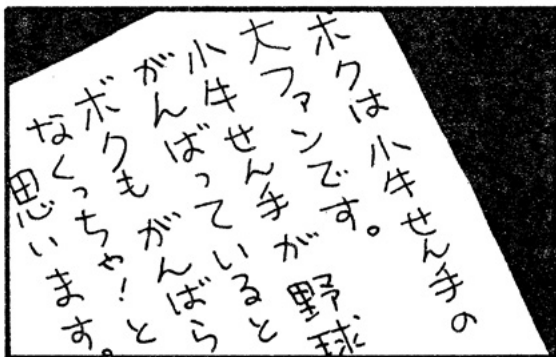 ボクは小牛せん手の
大ファンです。
小牛せん手が野球
がんばっていると
ボクもがんばら
なくっちゃ！と
思います。